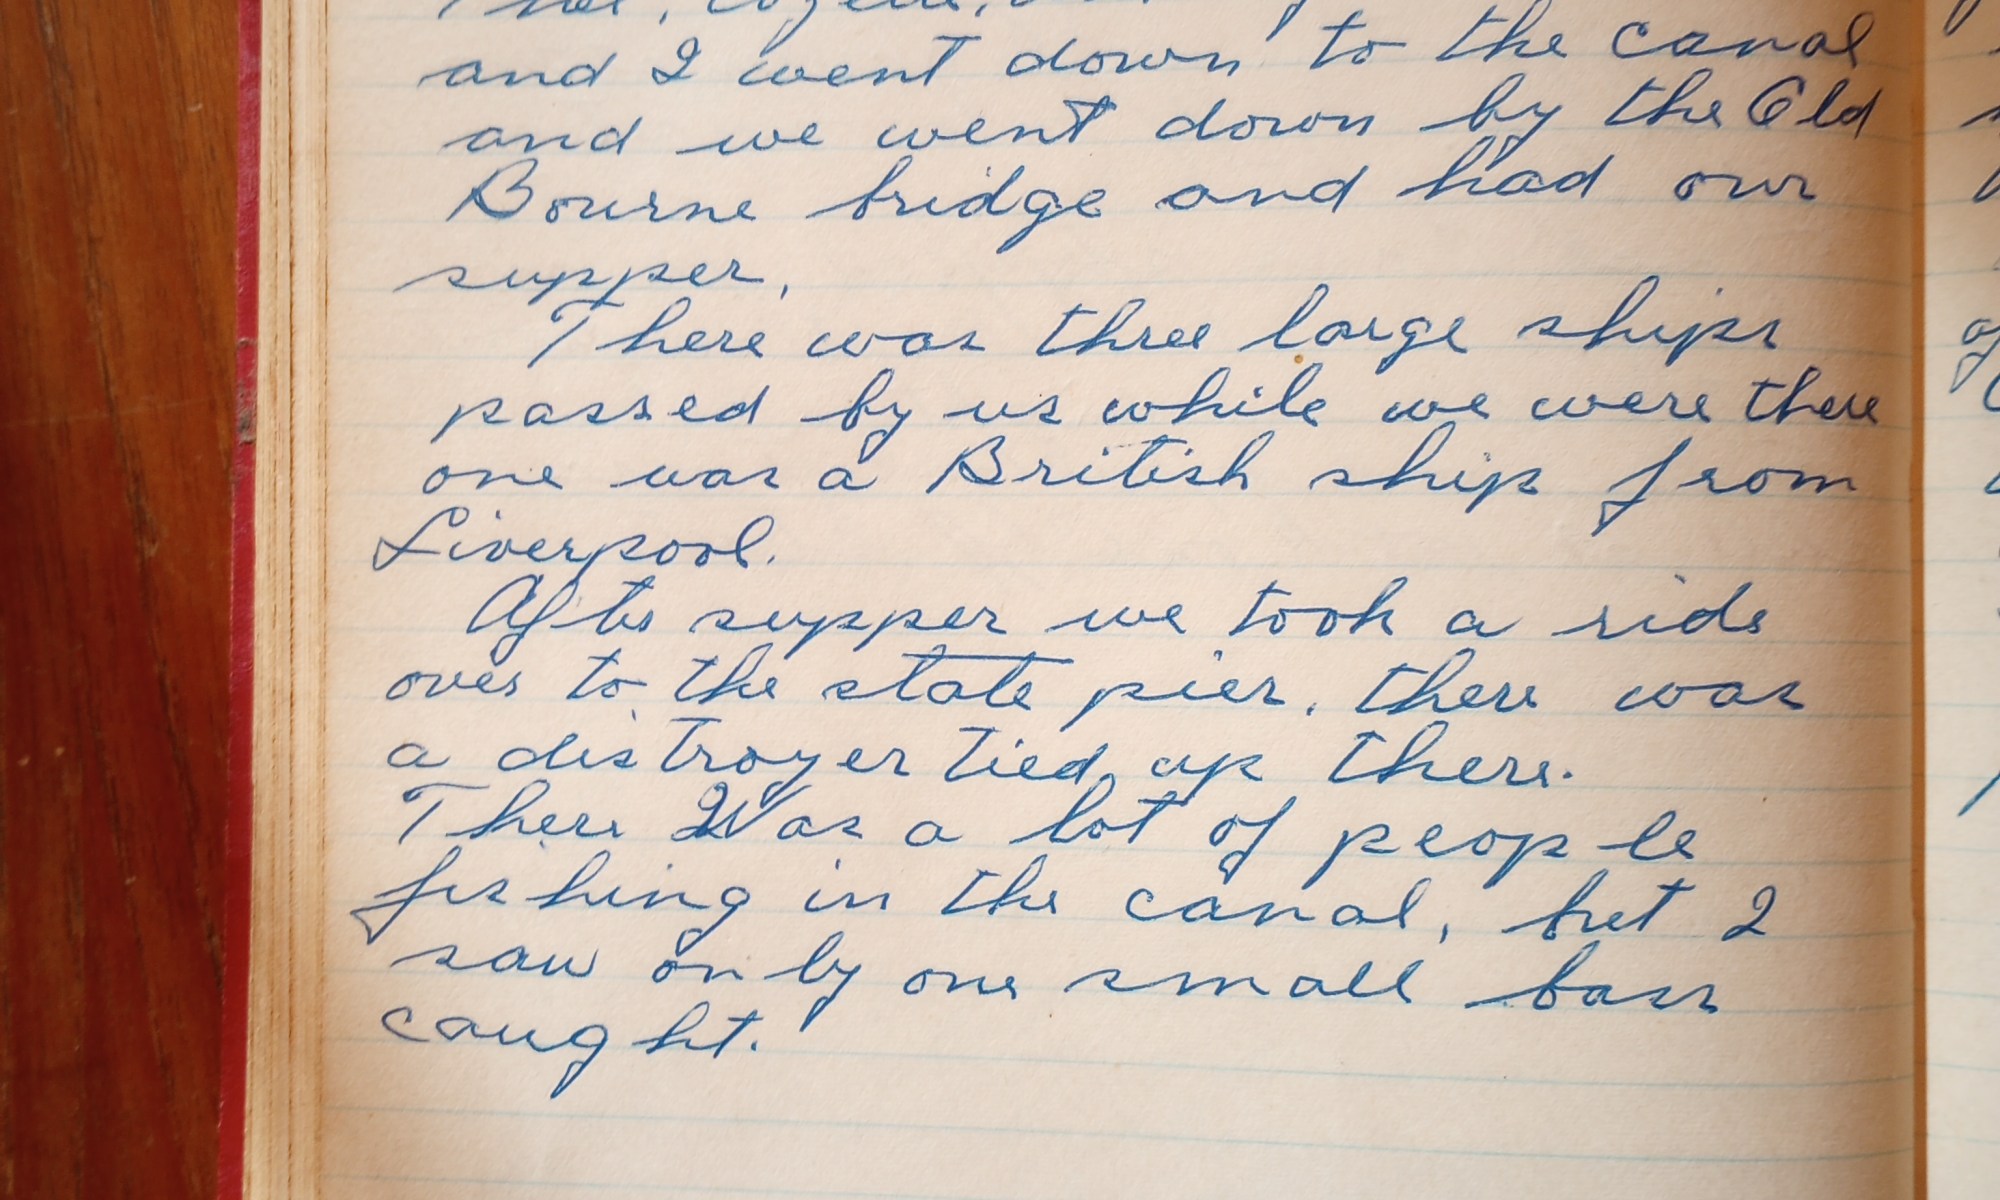 and I went down to the canal
and we went down by the Old
Bourne bridge and had our
supper,
There was three large ships
passed by us while we were there
one was a British ship from
Liverpool.
After supper we took a ride
over to the state pier, there was
a distroyer tied up there.
There Was a lot of people
fishing in the canal, but I
saw only one small bass
caught.